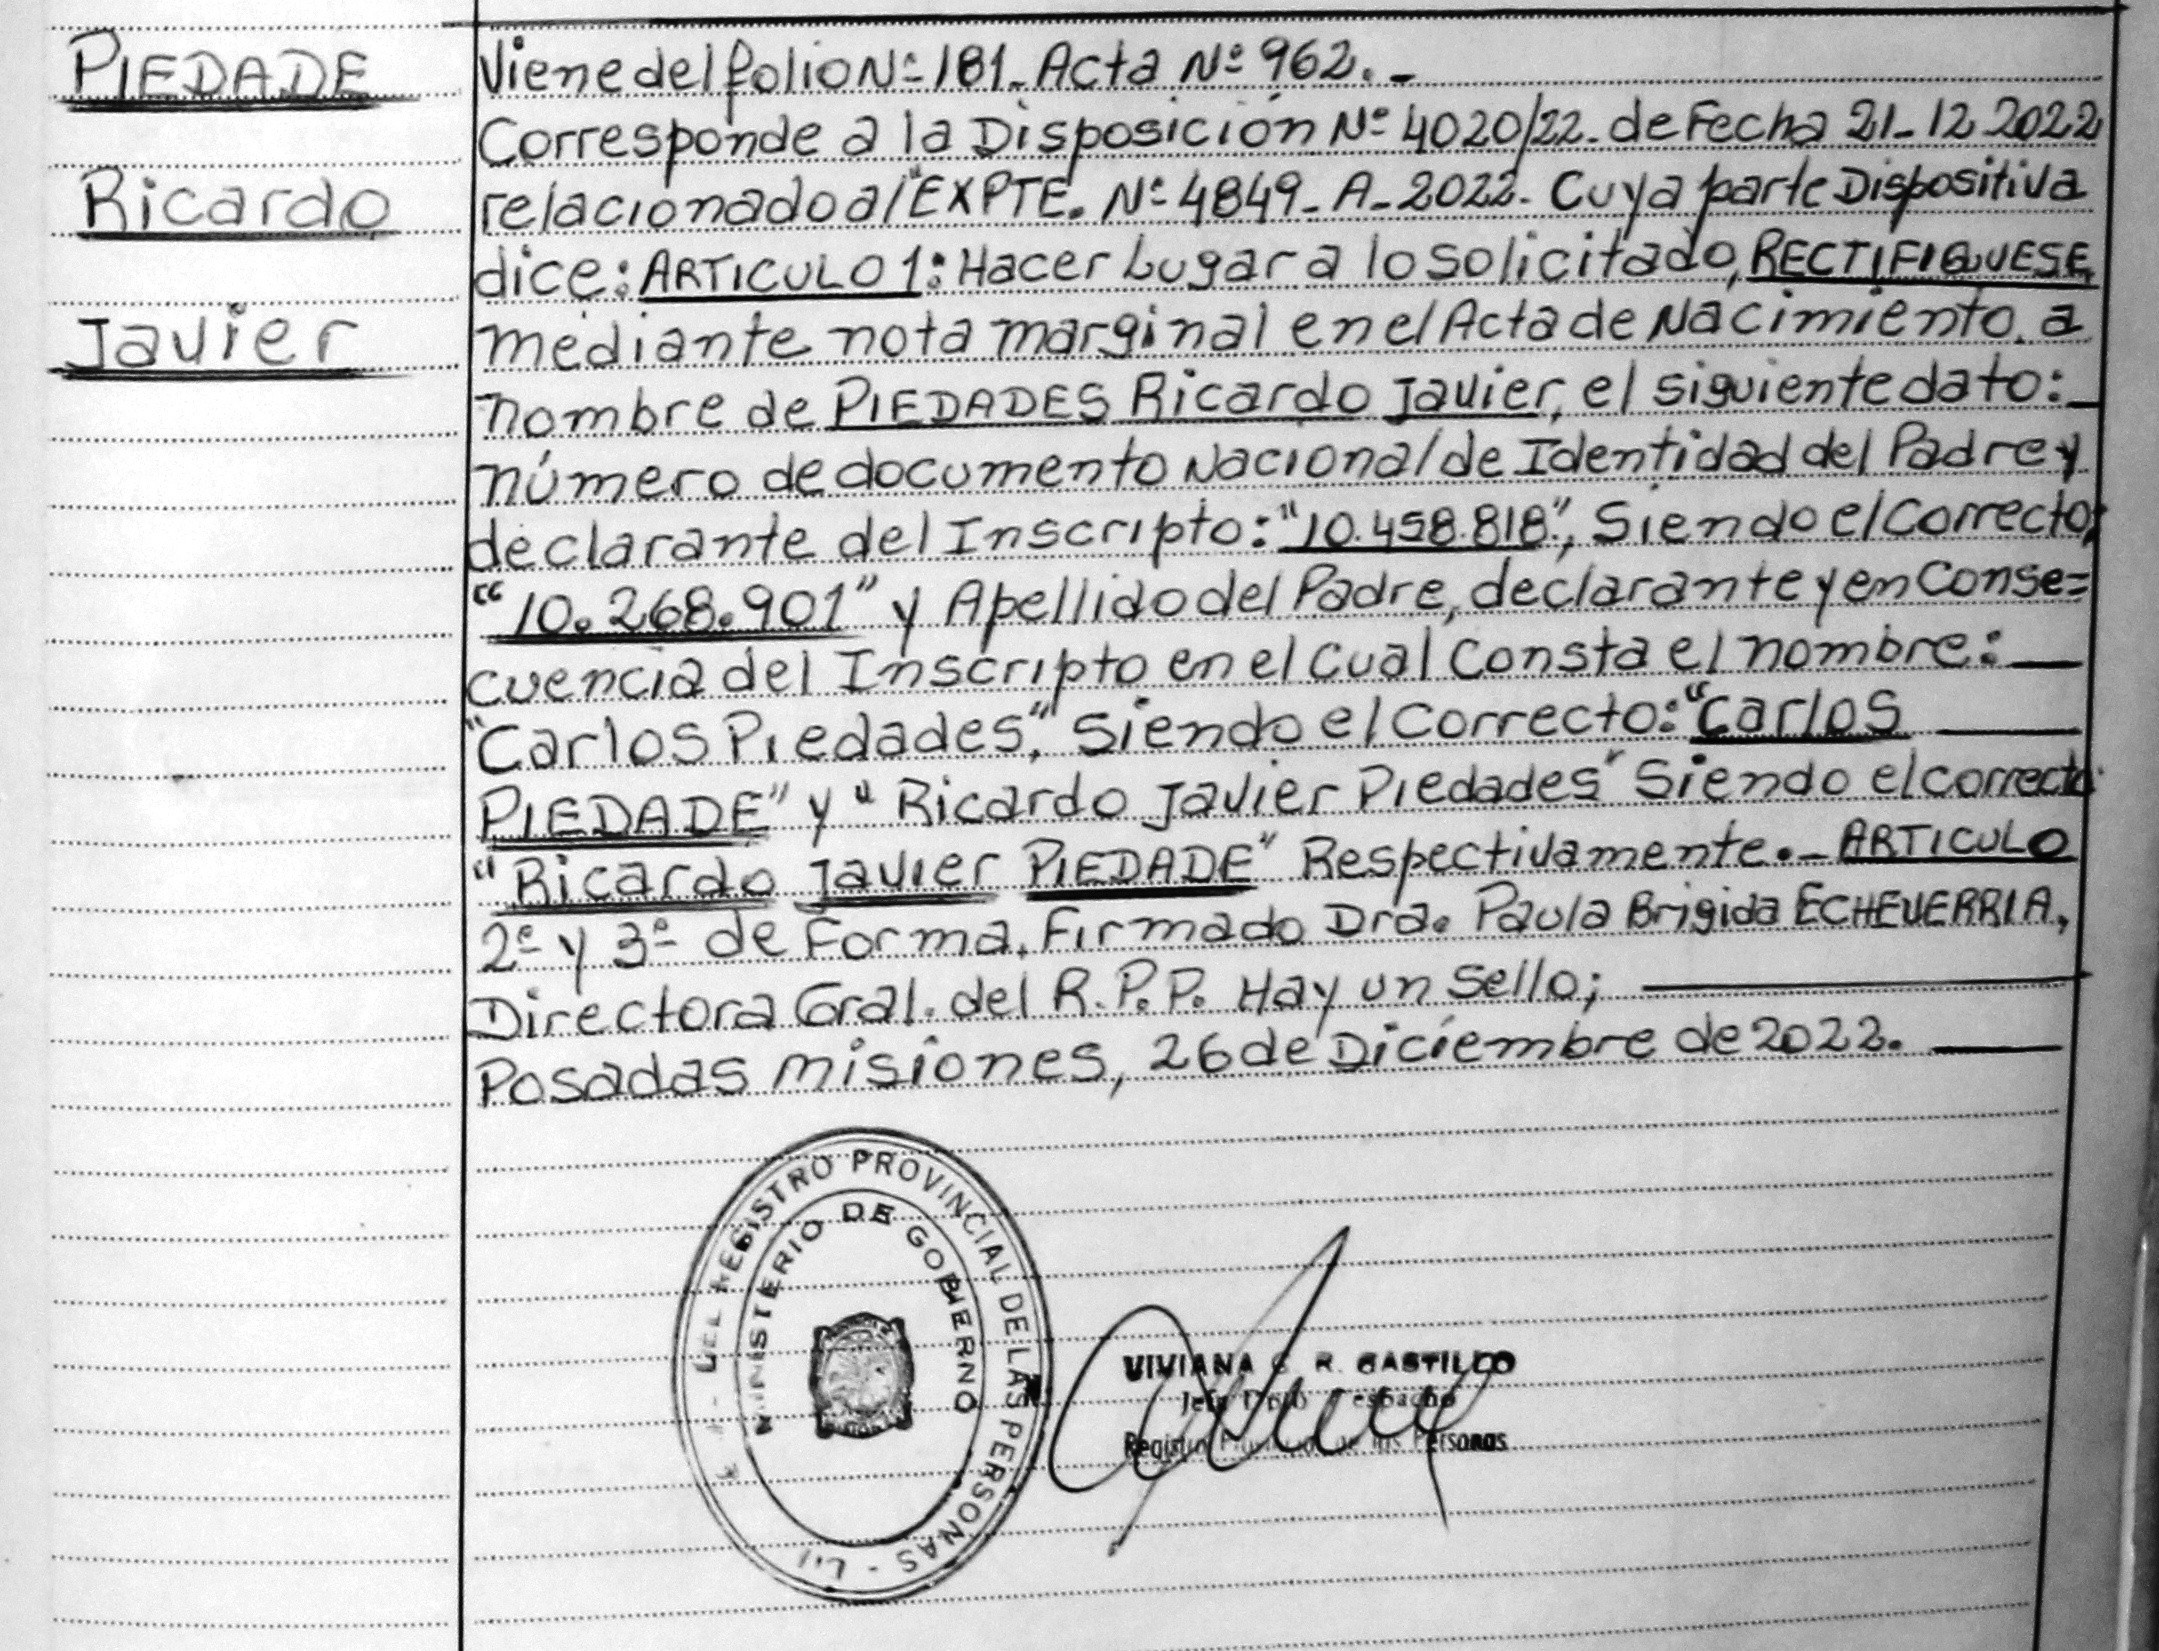 PIEDADE
Ricardo
Javier
Viene del folio Nº 181_ Acta Nº 962._
Corresponde a la Disposición Nº 4020/22_ de Fecha 21_12 2022
relacionado al "EXPTE. Nº 4849_ A_2022_ Cuya parte Dispositiva
dice: ARTICULO 1: Hacer Lugar a lo solicitado, RECTIFIQUESE,
mediante nota marginal en el Acta de Nacimiento, a
nombre de PIEDADES Ricardo Javier, el siguiente dato:_
número de documento Nacional de Identidad del Padre y
declarante del Inscripto: "10.458.818", Siendo el Correcto;
"10.268.901" y Apellido del Padre, declarante y en Conse=
cuencia del Inscripto en el Cual Consta el nombre: _
"Carlos Piedades", Siendo el Correcto: "Carlos _
PIEDADE" y "Ricardo Javier Piedades" Siendo el correcto:
"Ricardo Javier PIEDADE" Respectivamente._ ARTICULO
2º y 3º de Forma, Firmado Dra. Paula Brigida ECHEVERRIA,
Directora Gral. del R.P.P. Hay un Sello; _
Posadas misiones, 26 de Diciembre de 2022. _
DEL REGISTRO PROVINCIAL DE LAS PERSONAS -
MINISTERIO DE GOBIERNO
VIVIANA R. CASTILLO
Jefe Dpto Despacho
Registro Provincial de las Personas